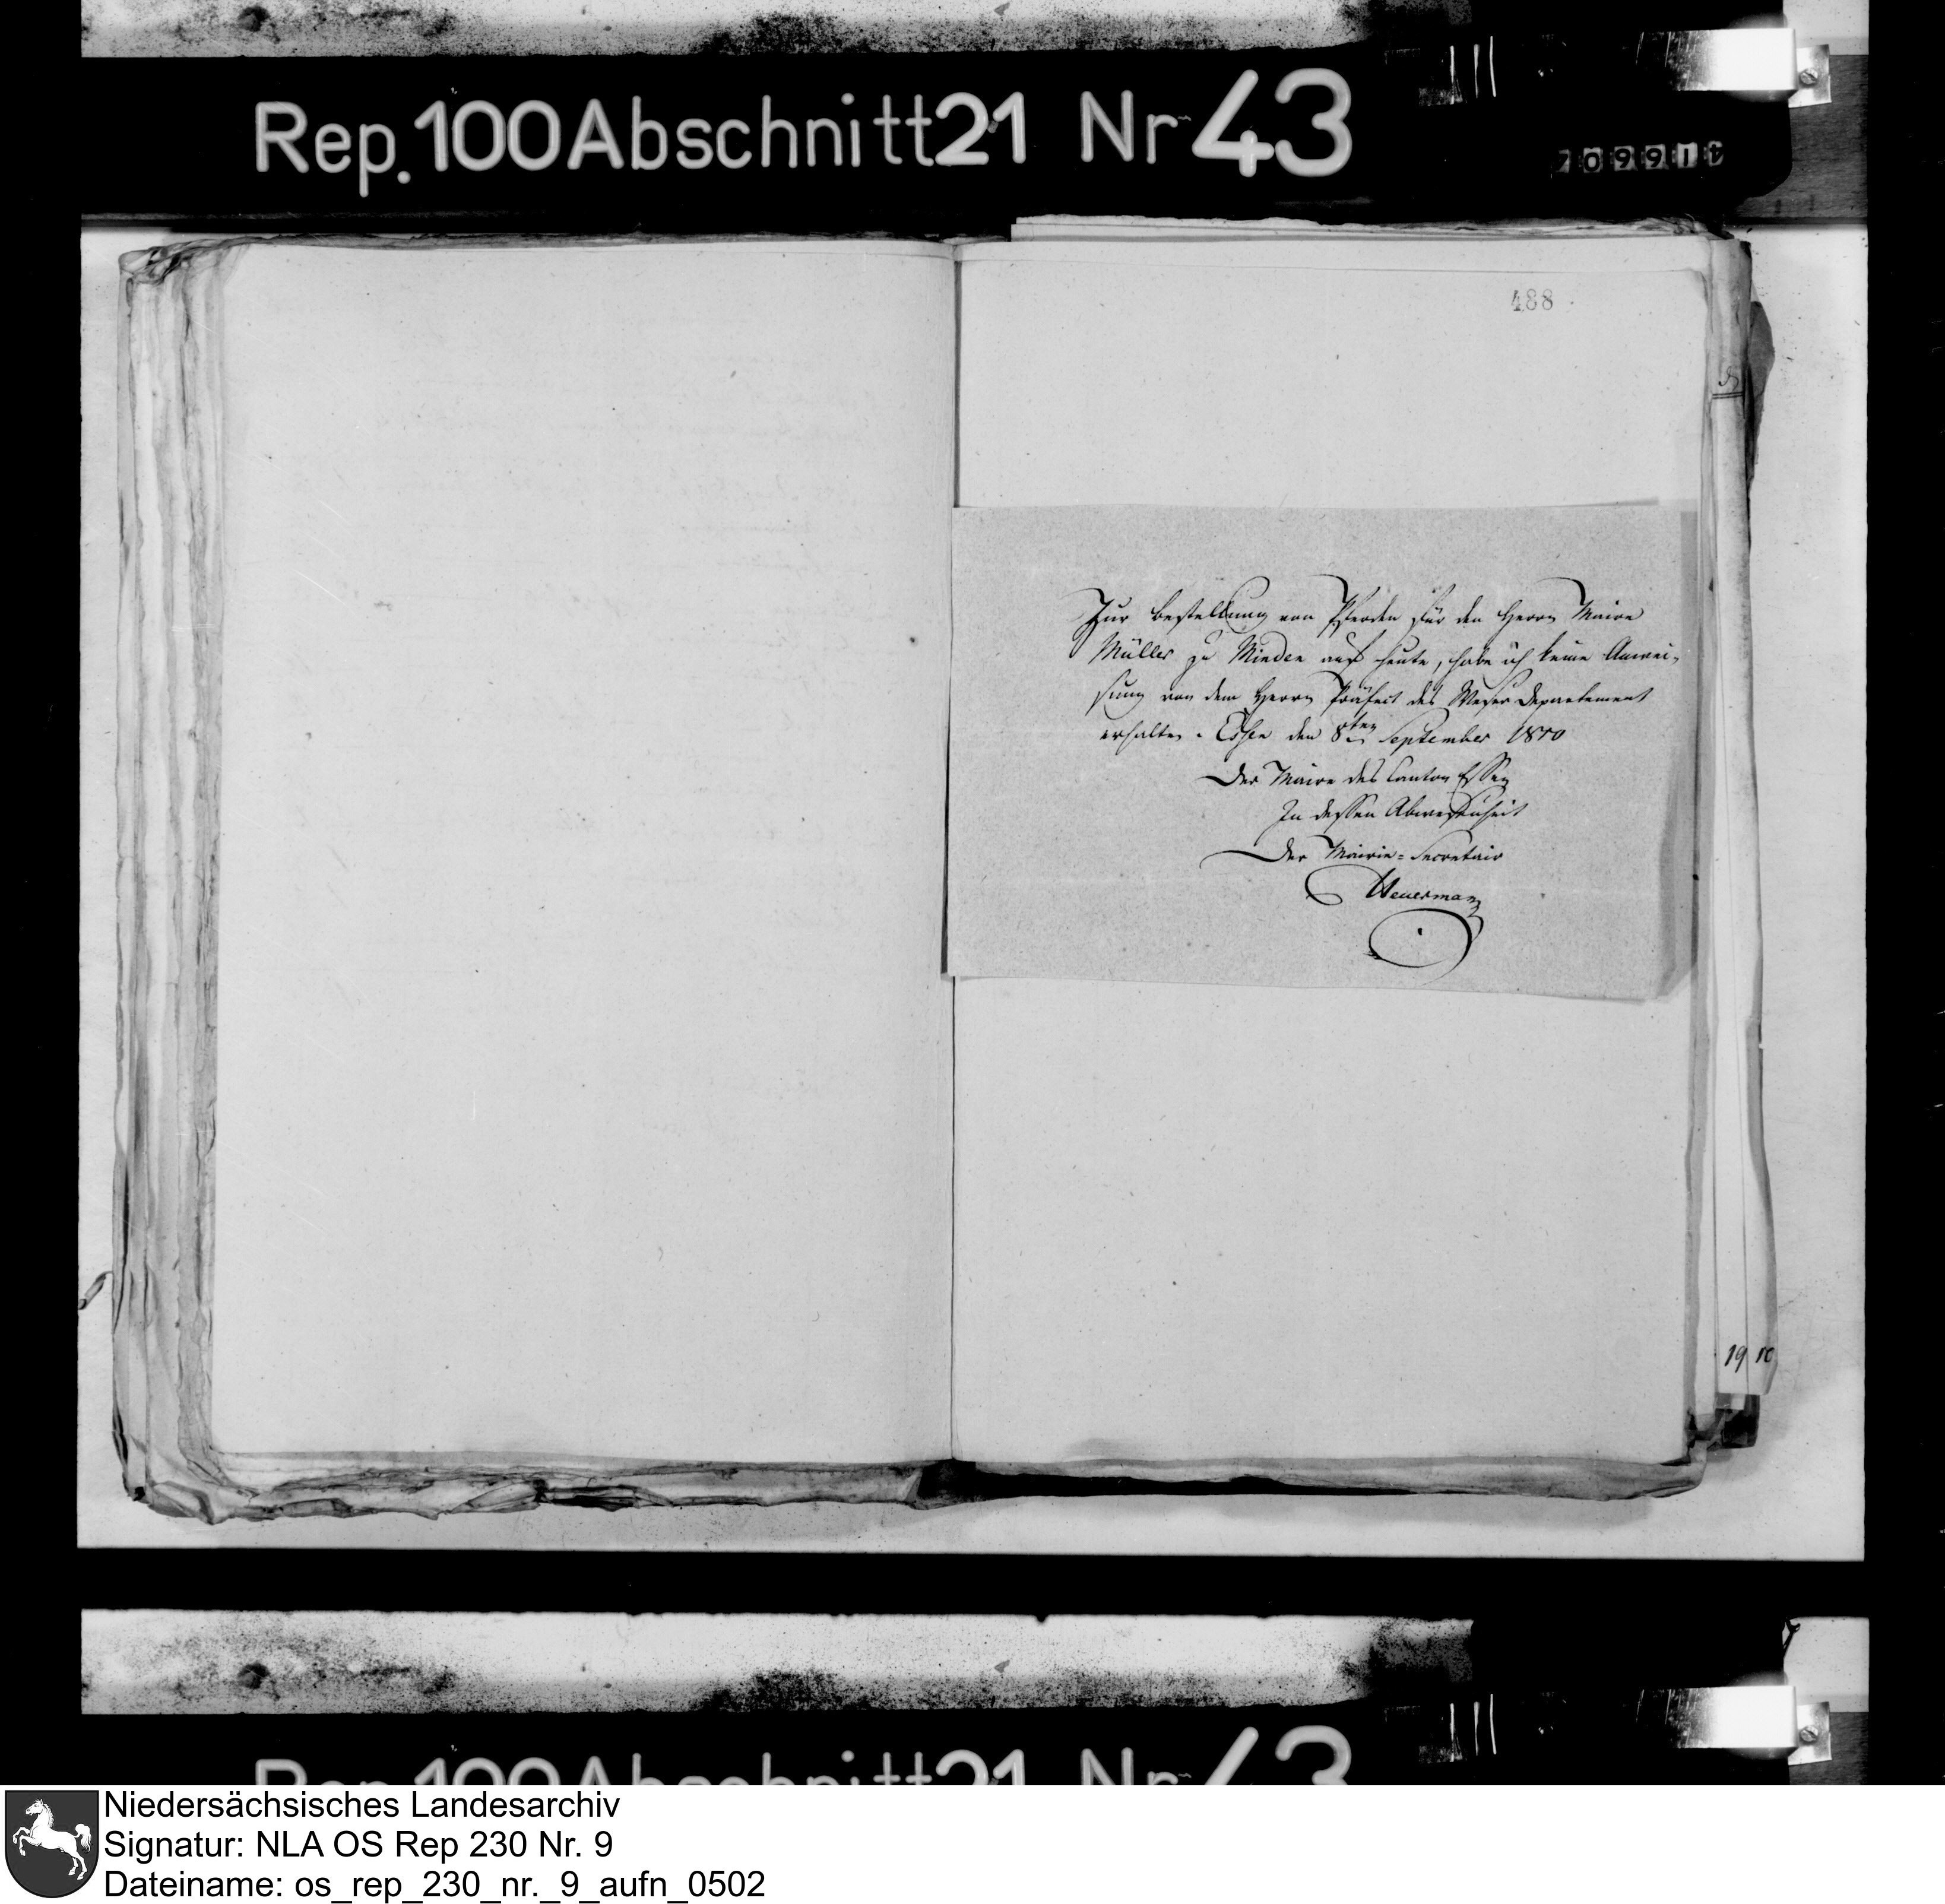 Rep. 100 Abschnitt 21 Nr 43
209914
488
Zur bestellung von Pferden für den Herrn Maire
Müller zu Minden auf heute, habe ich keine Anwei-
sung von dem Herrn Präfect des Weser Departement
erhalten. Essen den 8ten September 1810
Der Maire des Canton Essen
In dessen Abwesenheit
Der Mairie-Secretair
Heuerman
19 10
Rep. 100 Abschnitt 21 Nr 43
Niedersächsisches Landesarchiv
Signatur: NLA OS Rep 230 Nr. 9
Dateiname: os_rep_230_nr._9_aufn_0502